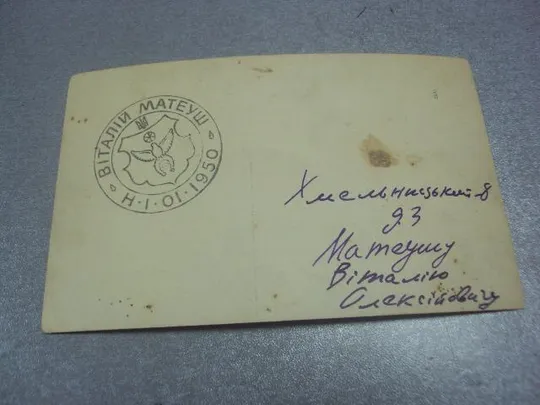 ВІТАЛІЙ МАТЕУШ
Н·І·ОІ·1950
Хмельницький-8
я 3
Матеушу
Віталію
Олексійовичу